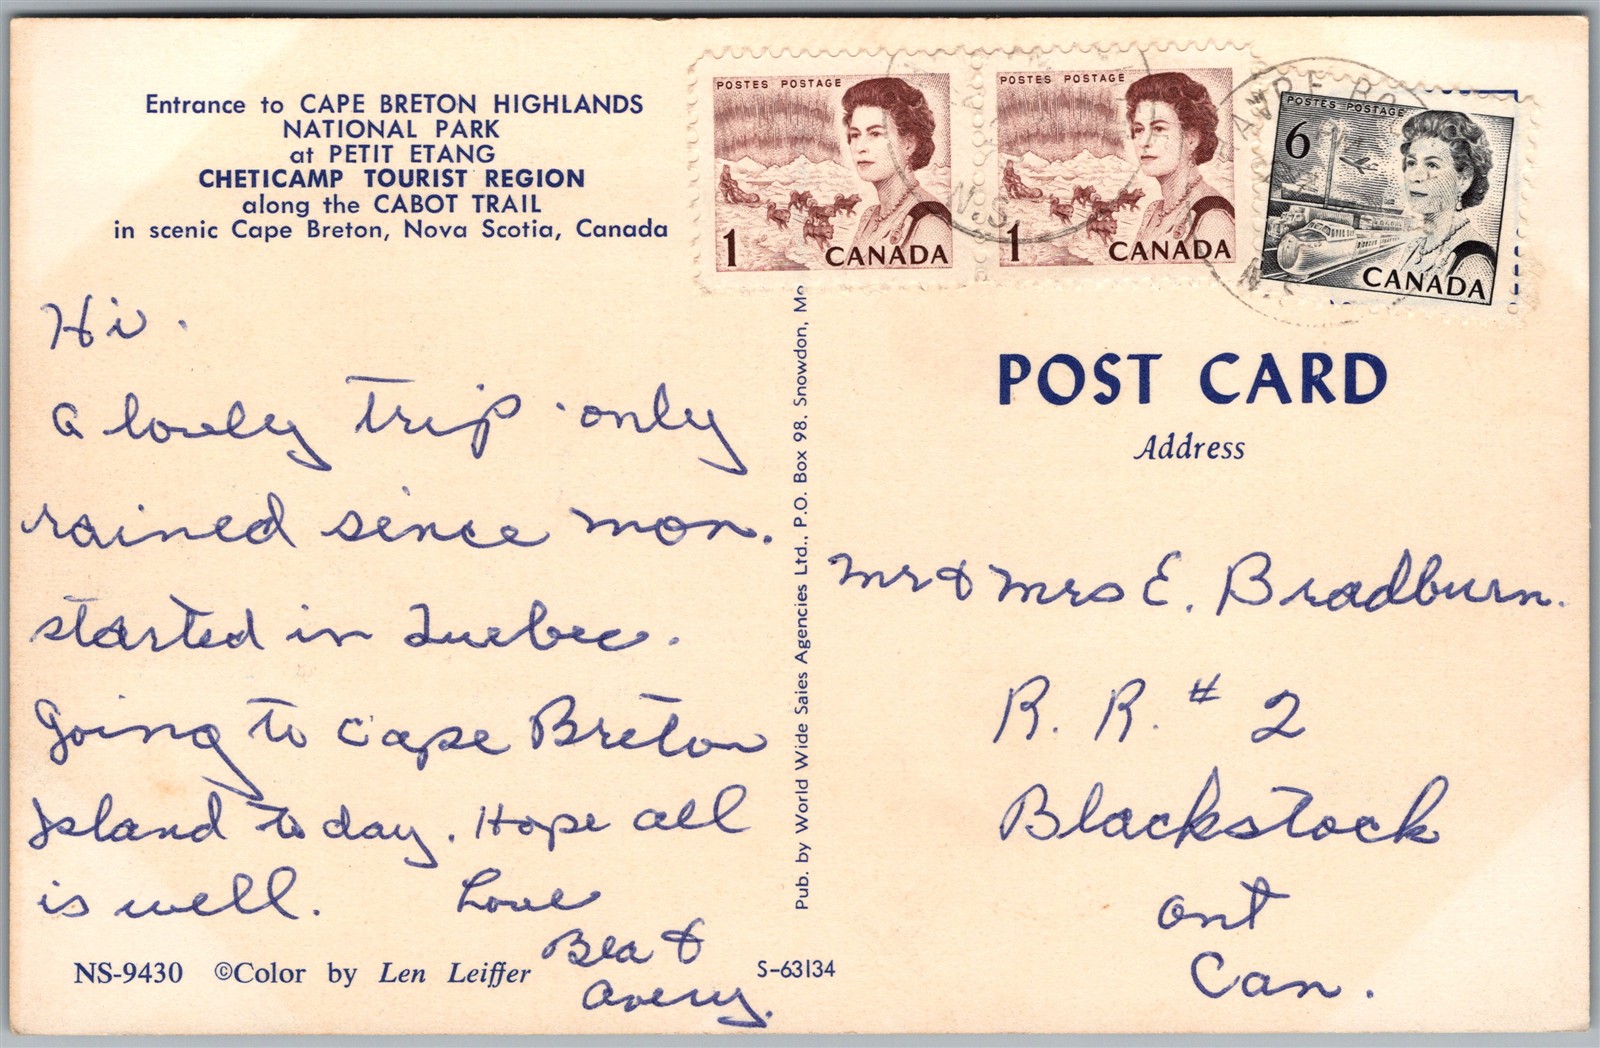 Entrance to CAPE BRETON HIGHLANDS
NATIONAL PARK
at PETIT ETANG
CHETICAMP TOURIST REGION
along the CABOT TRAIL
in scenic Cape Breton, Nova Scotia, Canada
Hi.
A lovely trip. only
rained since mon.
started in Quebec.
Going to Cape Breton
Island to day. Hope all
is well. Love
Bea &
Avery.
NS-9430 ©Color by Len Leiffer
S-63134
Pub. by World Wide Sales Agencies Ltd., P.O. Box 98. Snowdon,
POSTES POSTAGE
1 CANADA
POSTES POSTAGE
1 CANADA
POSTES POSTAGE
6
CANADA
N.S.
N.S.
POST CARD
Address
Mr & Mrs E. Bradburn.
R. R. # 2
Blackstock
Ont
Can.